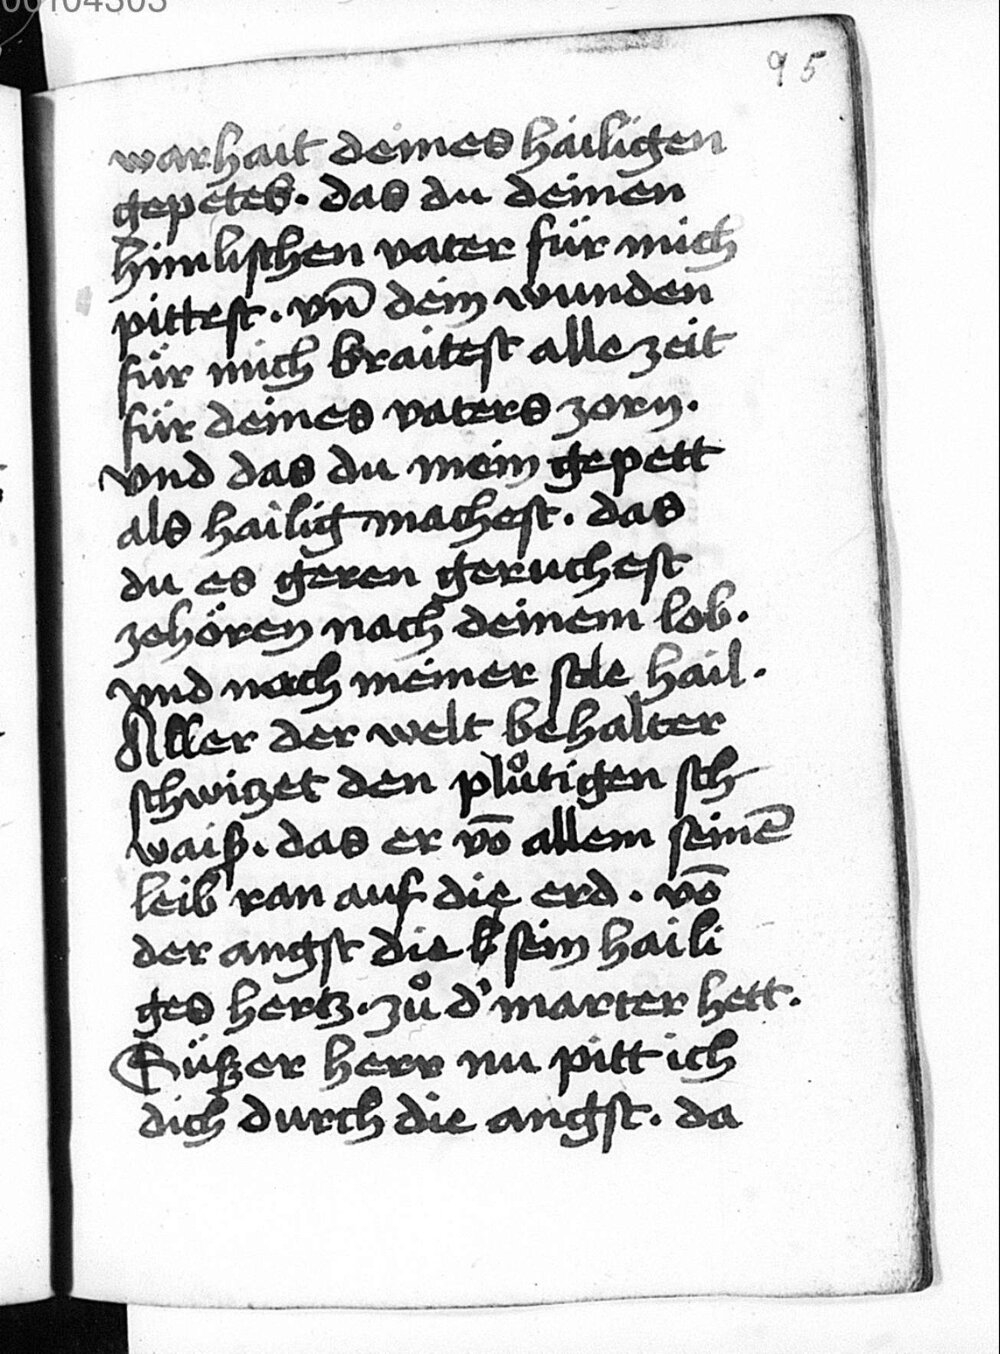 00104303
95
warhait deines hailigen
gepetes. das du deinen
himlischen vater für mich
pittest. vn̄ dein wunden
für mich braitest alle zeit
für deines vaters zorn.
vnd das du mein gepett
als hailig machest. das
du es geren geruchest
zehören nach deinem lob.
vnd nach meiner sele hail.
Aller der welt behalter
schwitzet den plůtigen sch
waiß. das er vō allem seinē
leib ran auf die erd. vō
der angst die sein haili
ges hertz. zů d' marter hett.
Süßer herr nu pitt ich
dich durch die angst. da